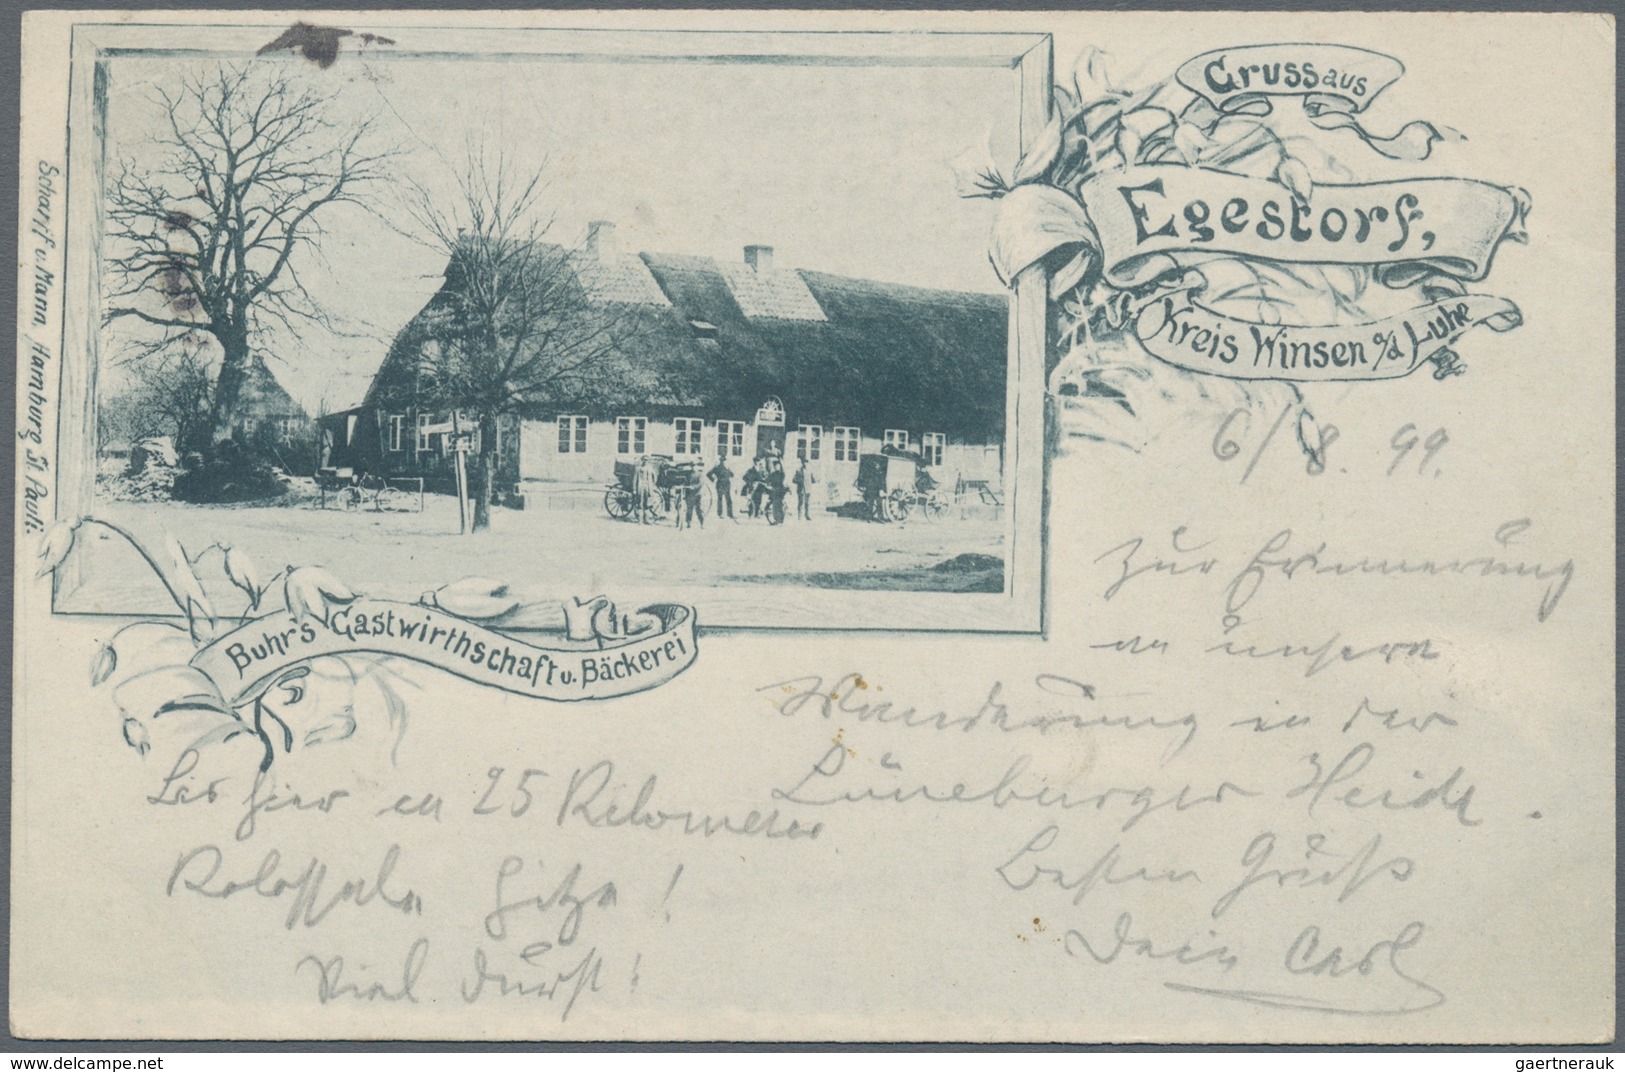 Gruss aus
Egestorf,
Kreis Winsen a/d Luhe
Scharff u. Mann, Hamburg St. Pauli.
Buhr's Gastwirthschaft u. Bäckerei
6/8. 99.
Zur Erinnerung
an unsere
Wanderung in der
Lüneburger Heide.
Besten Gruß
Dein Carl
Bis hier in 25 Kilometer
Kolossale Hitze!
Viel Durst!
www.delcampe.net
gaertnerauk